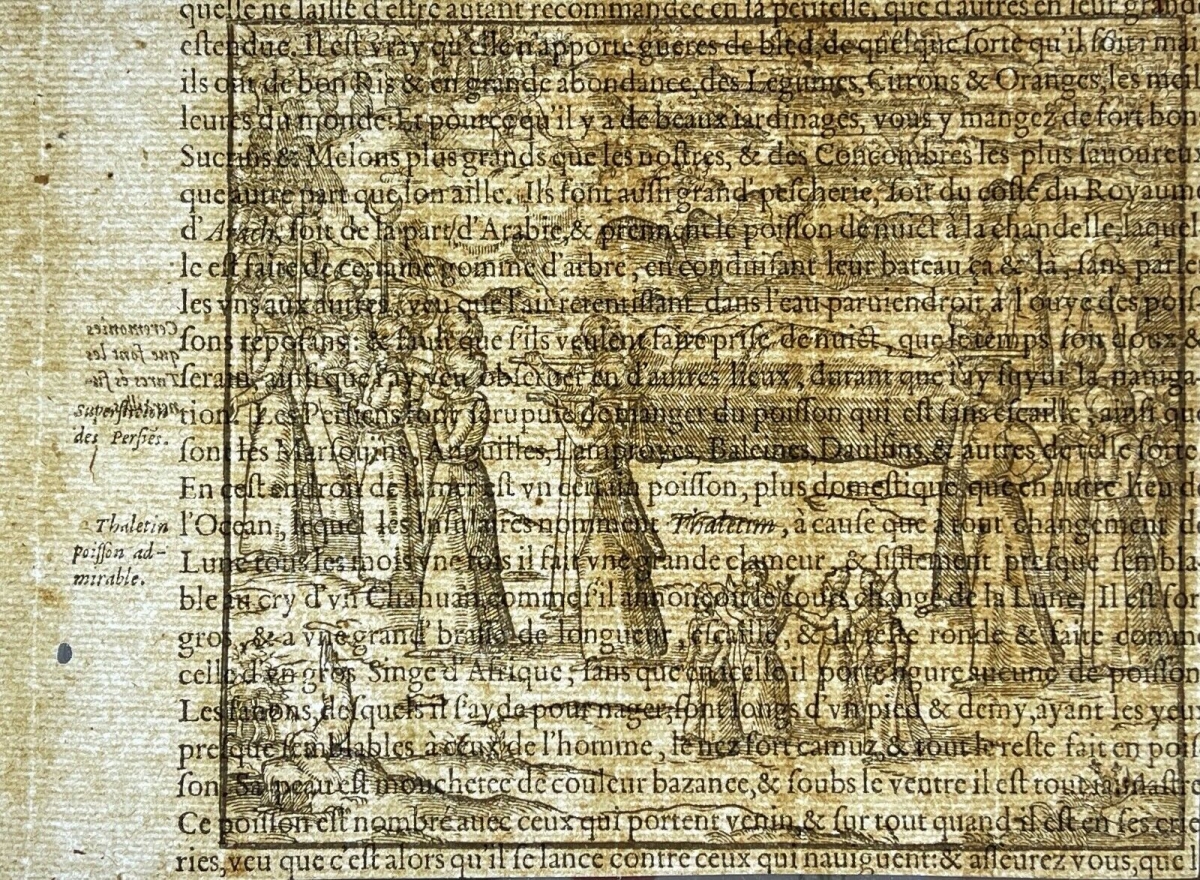 quelle ne laisse d'estre autant recommandee en sa petitesse, que d'autres en leur grand
estendue. Il est vray qu'elle n'apporte gueres de bled, de quelque sorte qu'il soit: mai
ils ont de bon Ris & en grande abondance, des Legumes, Citrons & Oranges, les meil
leures du monde: Et pource qu'il y a de beaux iardinages, vous y mangez de fort bon
Sucrins & Melons plus grands que les nostres, & des Concombres les plus sauoureux
que autre part que lon aille. Ils font aussi grand' pescherie, soit du costé du Royaum
d' soit de la part d'Arabie, & prennent le poisson de nuict à la chandelle, laquel
le est faite de certaine gomme d'arbre, en conduisant leur bateau ça & là, sans parler
les vns aux autres, veu que l'air retentissant dans l'eau paruiendroit à l'ouye des pois
sons reposans: & faut que s'ils veulent faire prise de nuict, que le temps soit doux &
serain, ainsi que i'ay veu obseruer en d'autres lieux, durant que i'ay suyui la nauiga
tion. Les Persiens font scrupule de manger du poisson qui est sans escaille, ainsi que
sont les Marsouins, Anguilles, Lamproyes, Baleines, Daulfins, & autres de telle sorte
En cest endroit de la mer est vn certain poisson, plus domestique que en autre lieu d
l'Ocean, lequel les Insulaires nomment Thaletin, à cause que à tout changement d
Lune tous les mois vne fois il fait vne grande clameur, & sifflement presque sembla
ble au cry d'vn Chahuan, comme s'il annonçoit le cours changé de la Lune. Il est for
gros, & a vne grand' brasse de longueur, escaillé, & la teste ronde & faite comm
celle d'vn gros Singe d'Afrique, sans que en icelle il porte figure aucune de poisson
Les fanons, desquels il s'ayde pour nager, sont longs d'vn pied & demy, ayant les yeu
presque semblables à ceux de l'homme, le nez fort camuz, & tout le reste fait en pois
son. Sa peau est mouchetee de couleur bazanee, & soubs le ventre il est tout iaunastre
Ce poisson est nombré auec ceux qui portent venin, & sur tout quand il est en ses crie
ries, veu que c'est alors qu'il se lance contre ceux qui nauiguent: & asseurez vous, que l
Ceremonies
que font les
Turcs és fu-
Superstition
des Persiēs.
Thaletin
poisson ad-
mirable.